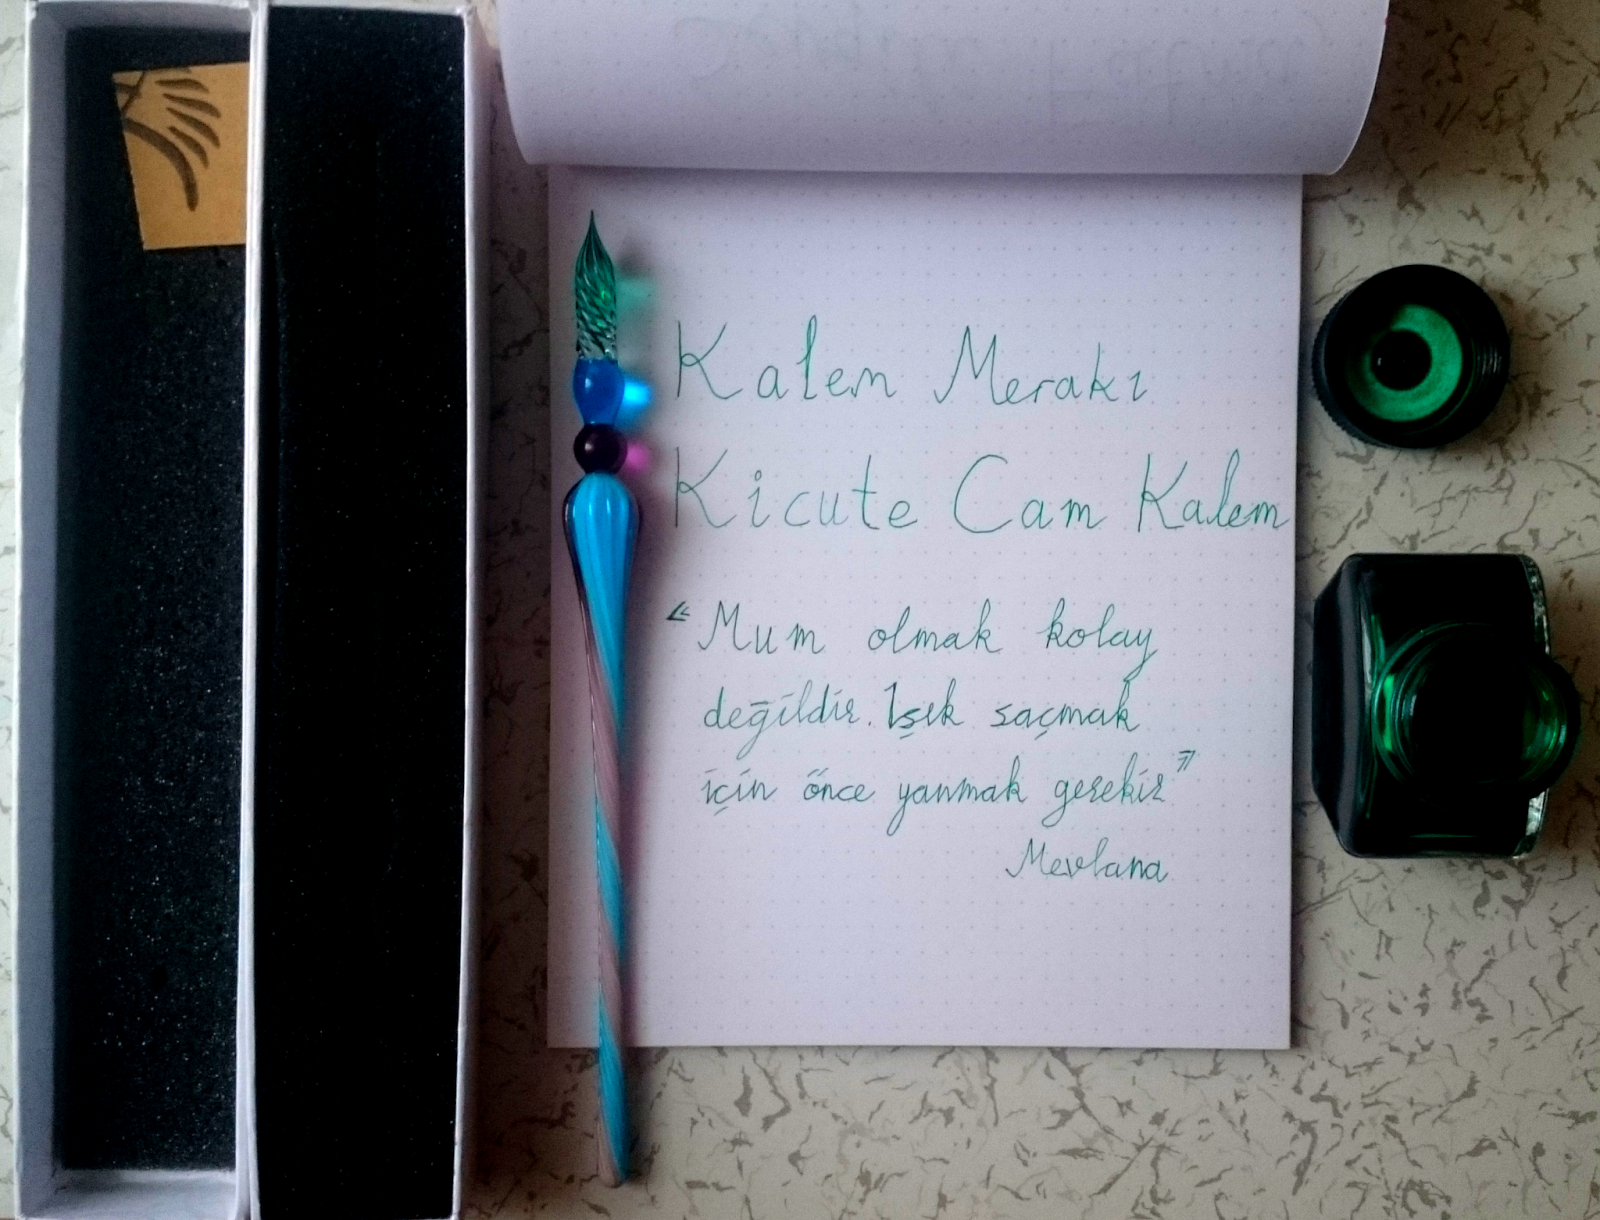 Kalem Merakı
Kicute Cam Kalem
"Mum olmak kolay
değildir. Işık saçmak
için önce yanmak gerekir"
Mevlana